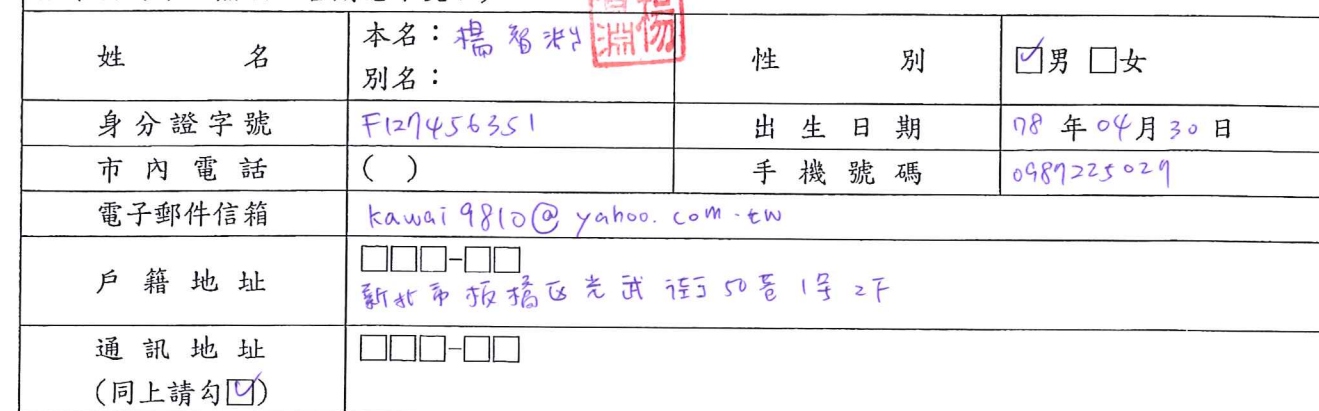 姓 名 本名：楊智淵 性 別 ☑男 □女
別名：
身分證字號 F127456351 出 生 日 期 78 年 04 月 30 日
市 內 電 話 ( ) 手 機 號 碼 0987225029
電子郵件信箱 kawai9810@yahoo.com.tw
戶 籍 地 址 □□□-□□
新北市板橋區光武街50巷1号2F
通 訊 地 址 □□□-□□
(同上請勾☑)